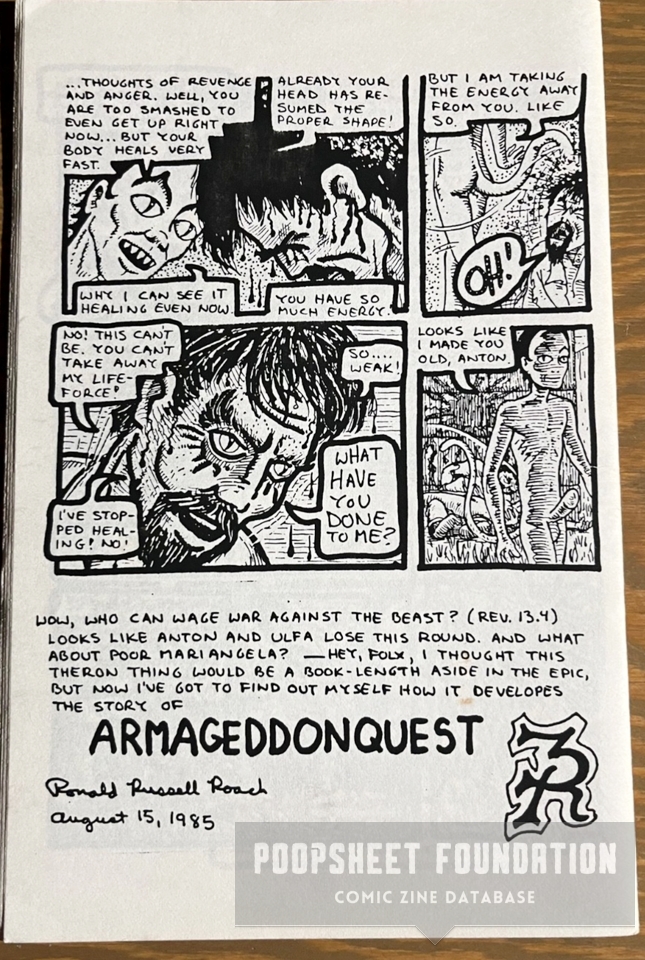 ...THOUGHTS OF REVENGE
AND ANGER. WELL, YOU
ARE TOO SMASHED TO
EVEN GET UP RIGHT
NOW... BUT YOUR
BODY HEALS VERY
FAST.
ALREADY YOUR
HEAD HAS RE-
SUMED THE
PROPER SHAPE!
WHY I CAN SEE IT
HEALING EVEN NOW.
YOU HAVE SO
MUCH ENERGY.
BUT I AM TAKING
THE ENERGY AWAY
FROM YOU. LIKE
SO.
OH!
NO! THIS CAN'T
BE. YOU CAN'T
TAKE AWAY
MY LIFE-
FORCE!
SO....
WEAK!
WHAT
HAVE
YOU
DONE
TO ME?
I'VE STOP-
PED HEAL-
ING! NO!
LOOKS LIKE
I MADE YOU
OLD, ANTON.
WOW, WHO CAN WAGE WAR AGAINST THE BEAST? (REV. 13.4)
LOOKS LIKE ANTON AND ULFA LOSE THIS ROUND. AND WHAT
ABOUT POOR MARIANGELA? — HEY, FOLX, I THOUGHT THIS
THERON THING WOULD BE A BOOK-LENGTH ASIDE IN THE EPIC,
BUT NOW I'VE GOT TO FIND OUT MYSELF HOW IT DEVELOPES
THE STORY OF
ARMAGEDDONQUEST
3R
Ronald Russell Roach
August 15, 1985
POOPSHEET FOUNDATION
COMIC ZINE DATABASE